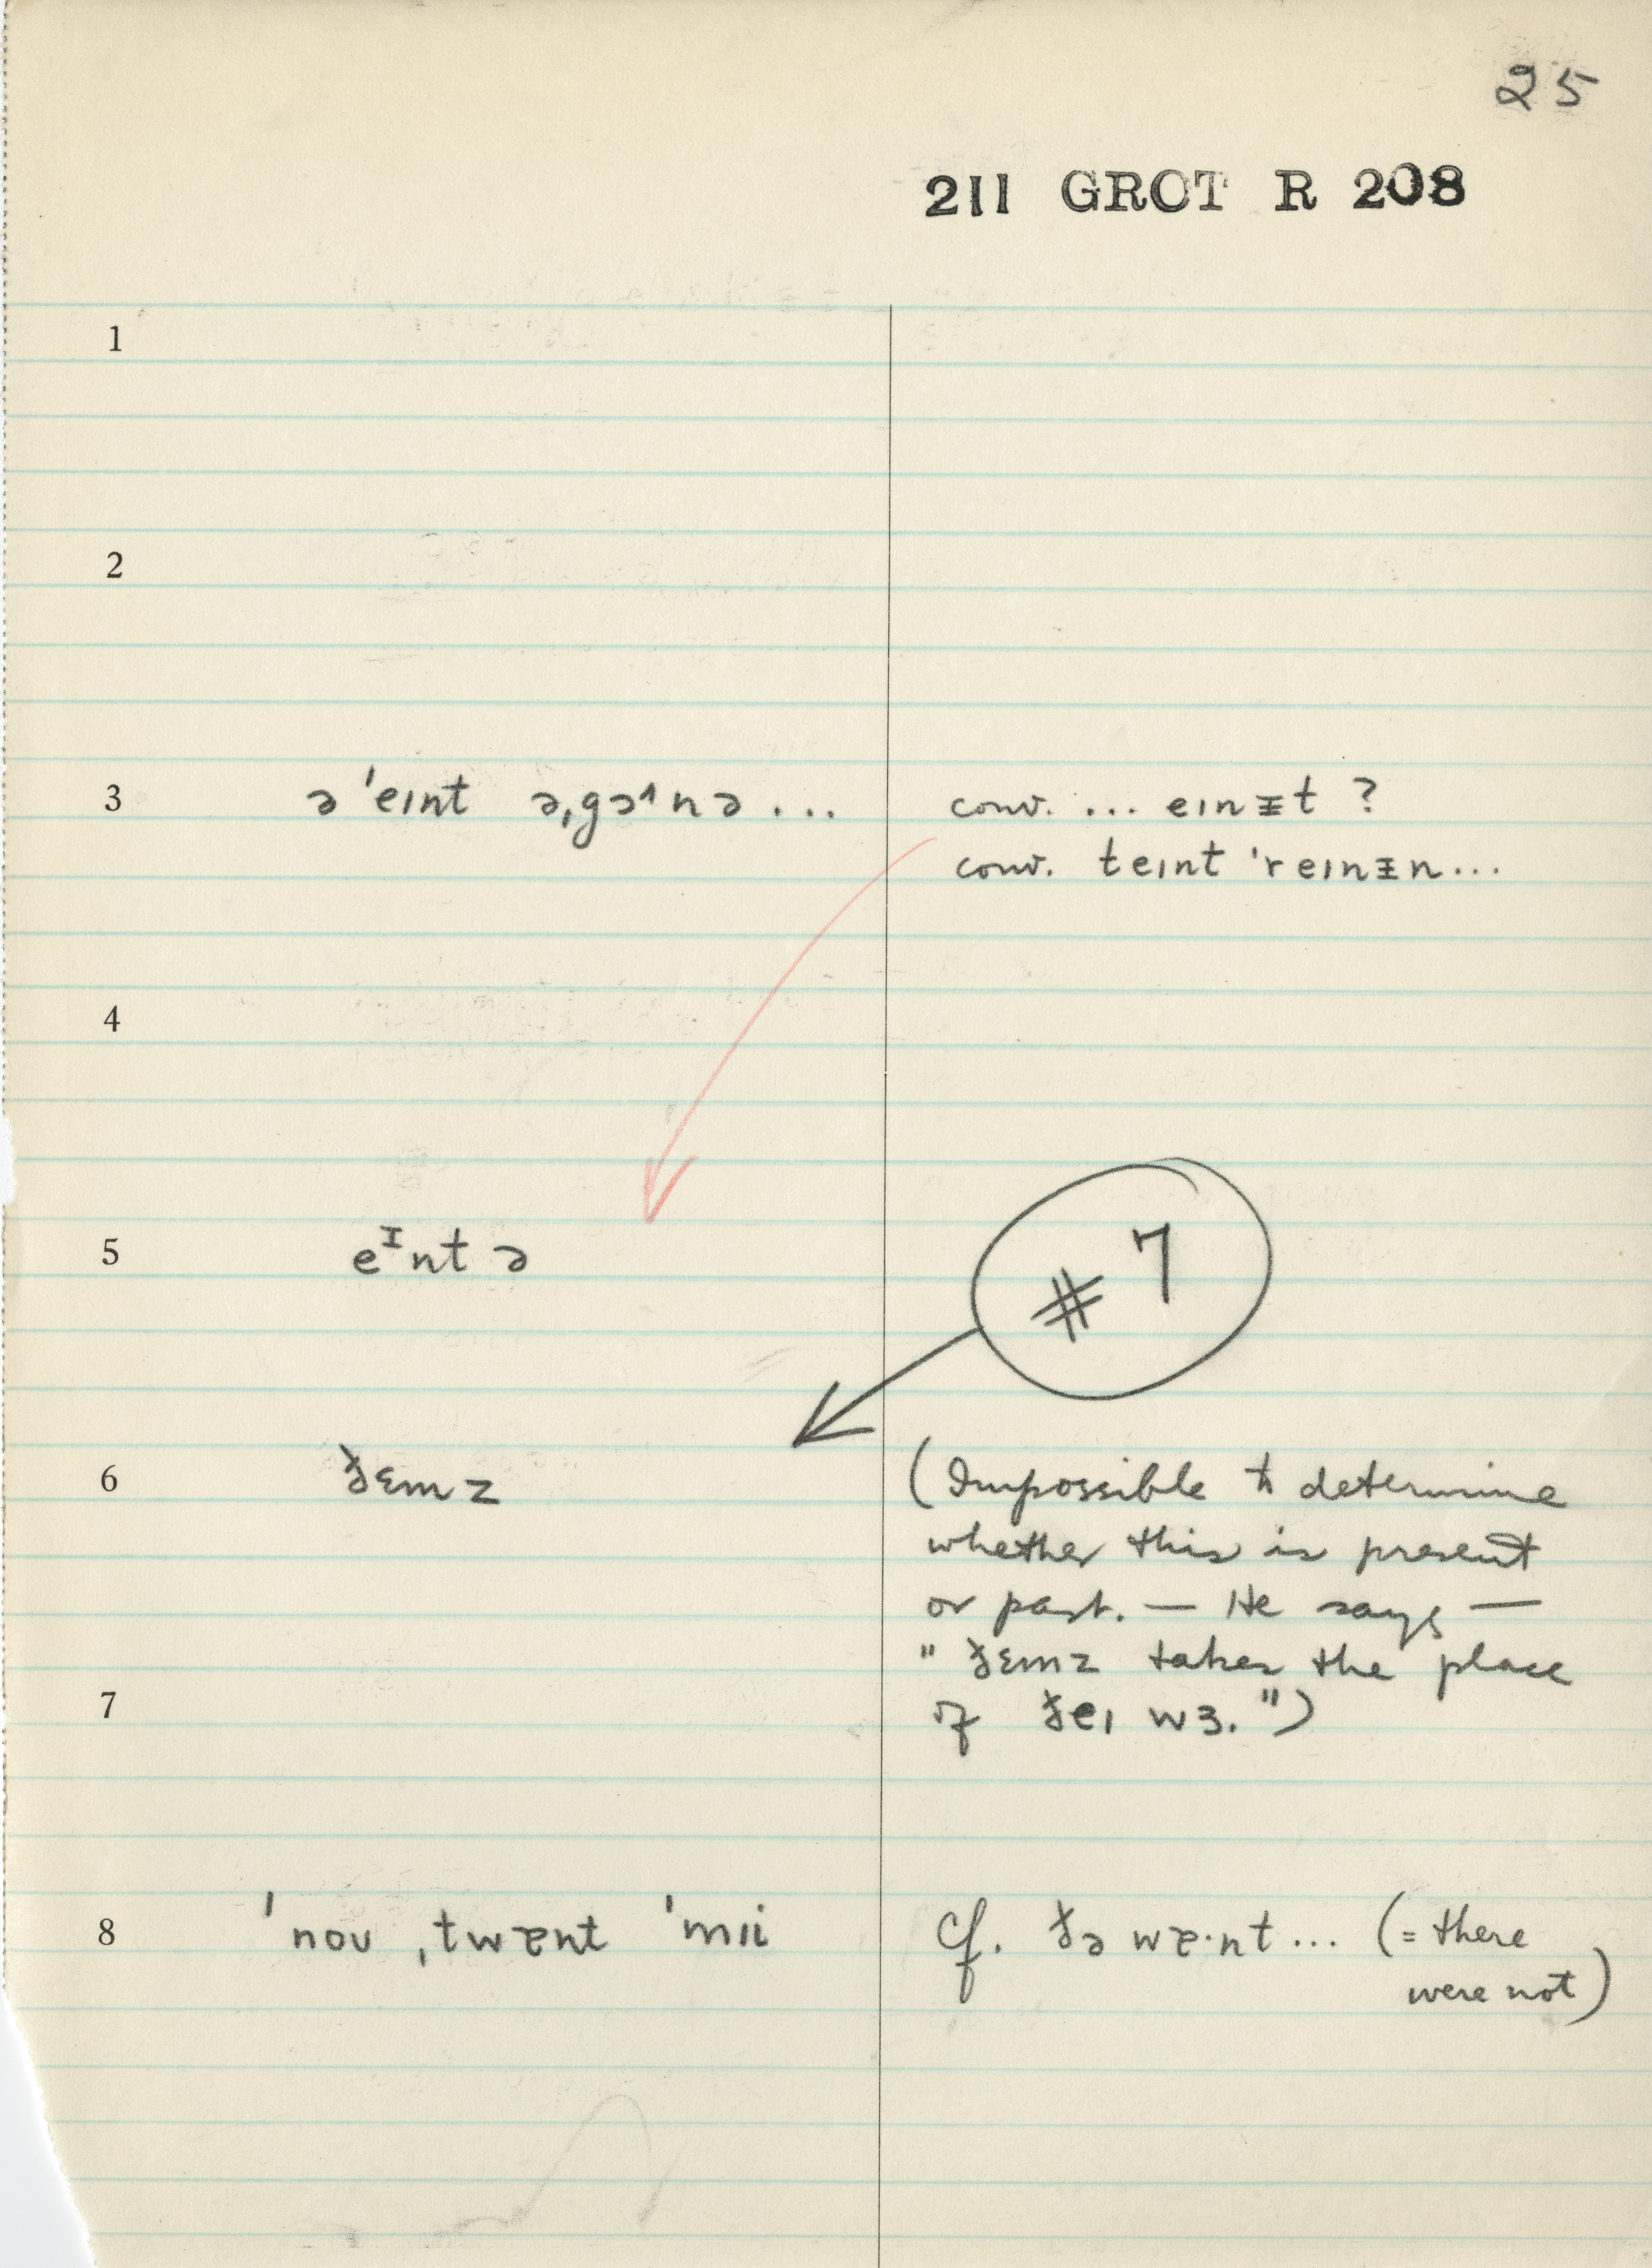 25
211 GROT R 208
1
2
3 ə ˈeɪnt əˌgɔ˄nə ... conv. ... eɪnɪ̵t ?
conv. teɪnt ˈreɪnɪ̵n...
4
5 eᴵnt ə
# 7
6 ðɛmz (Impossible to determine
whether this is present
or past. — He says —
" ðɛmz takes the place
7 of ðeɪ wɜ. ")
8 ˈnoʊ ˌtwɐnt ˈmɪi cf. ðə wɐ·nt... (= there
were not)